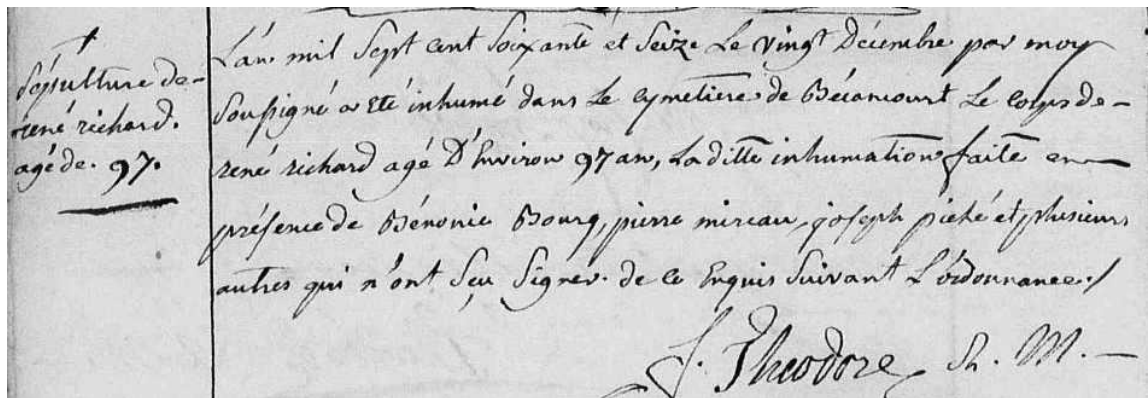 sépulture de
rené richard.
agé de. 97.
L'an mil Sept cent Soixante et Seize Le vingt Décembre par moy
Soussigné a Eté inhumé dans Le Cymetière de Bécancourt Le Corps de
rené richard agé D'Environ 97 an, La ditte inhumation faite en
présence de Bénonie Bourg, pierre mireau, joseph piché et plusieurs
autres qui n'ont Sçu Signer. de ce Enquis Suivant L'ordonnance./
f. Theodore M.